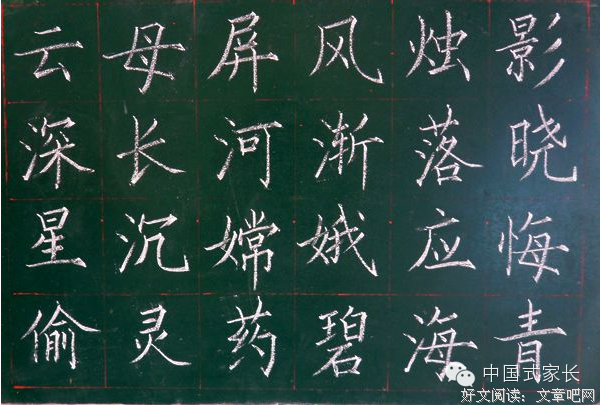 云母屏风烛影
深长河渐落晓
星沉嫦娥应悔
偷灵药碧海青
中国式家长
好文阅读：文章吧网